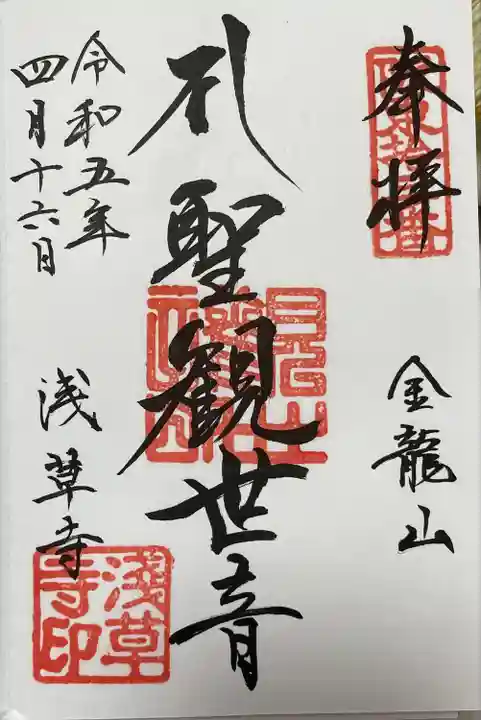 奉拝
金龍山
聖観世音
令和五年
四月十六日
浅草寺
淺草
寺印